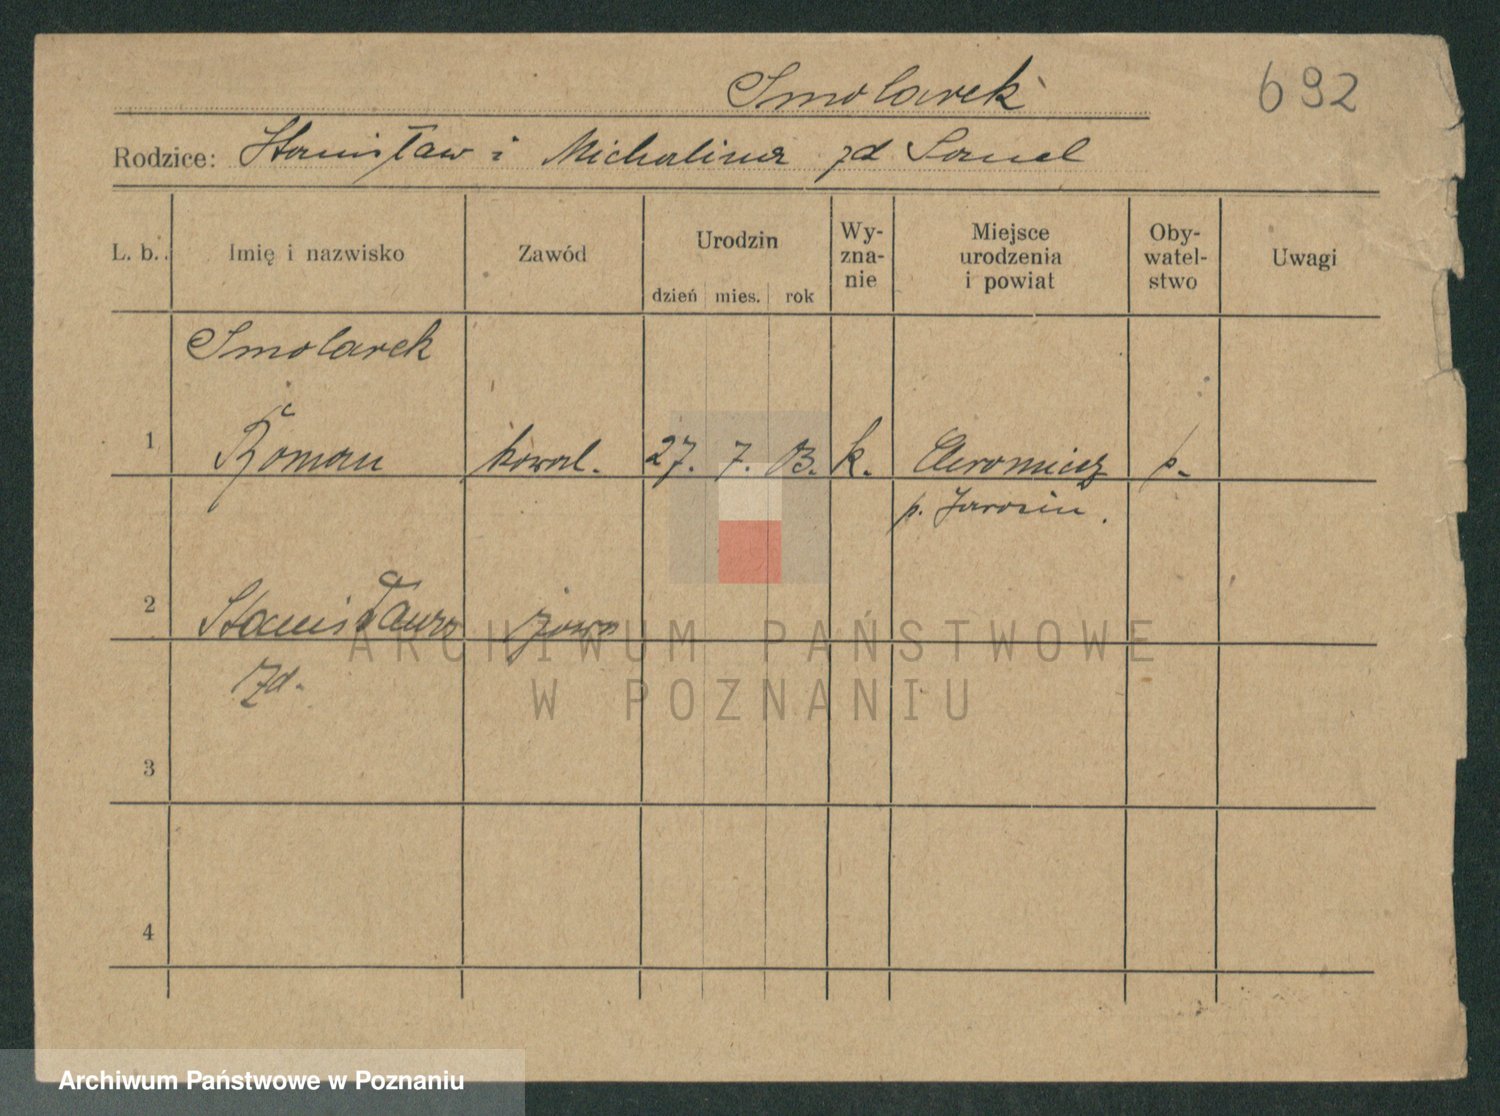 692
Smolarek
Rodzice: Stanisław i Michalina zd
L. b.
Imię i nazwisko
Zawód
Urodzin
dzień mies. rok
Wy-
zna-
nie
Miejsce
urodzenia
i powiat
Oby-
watel-
stwo
Uwagi
Smolarek
1 Roman kowal. 27. 7. 03. k. p.
p. Jarocin.
2 Stanisława żona
zd.
3
4
ARCHIWUM PAŃSTWOWE
W POZNANIU
Archiwum Państwowe w Poznaniu